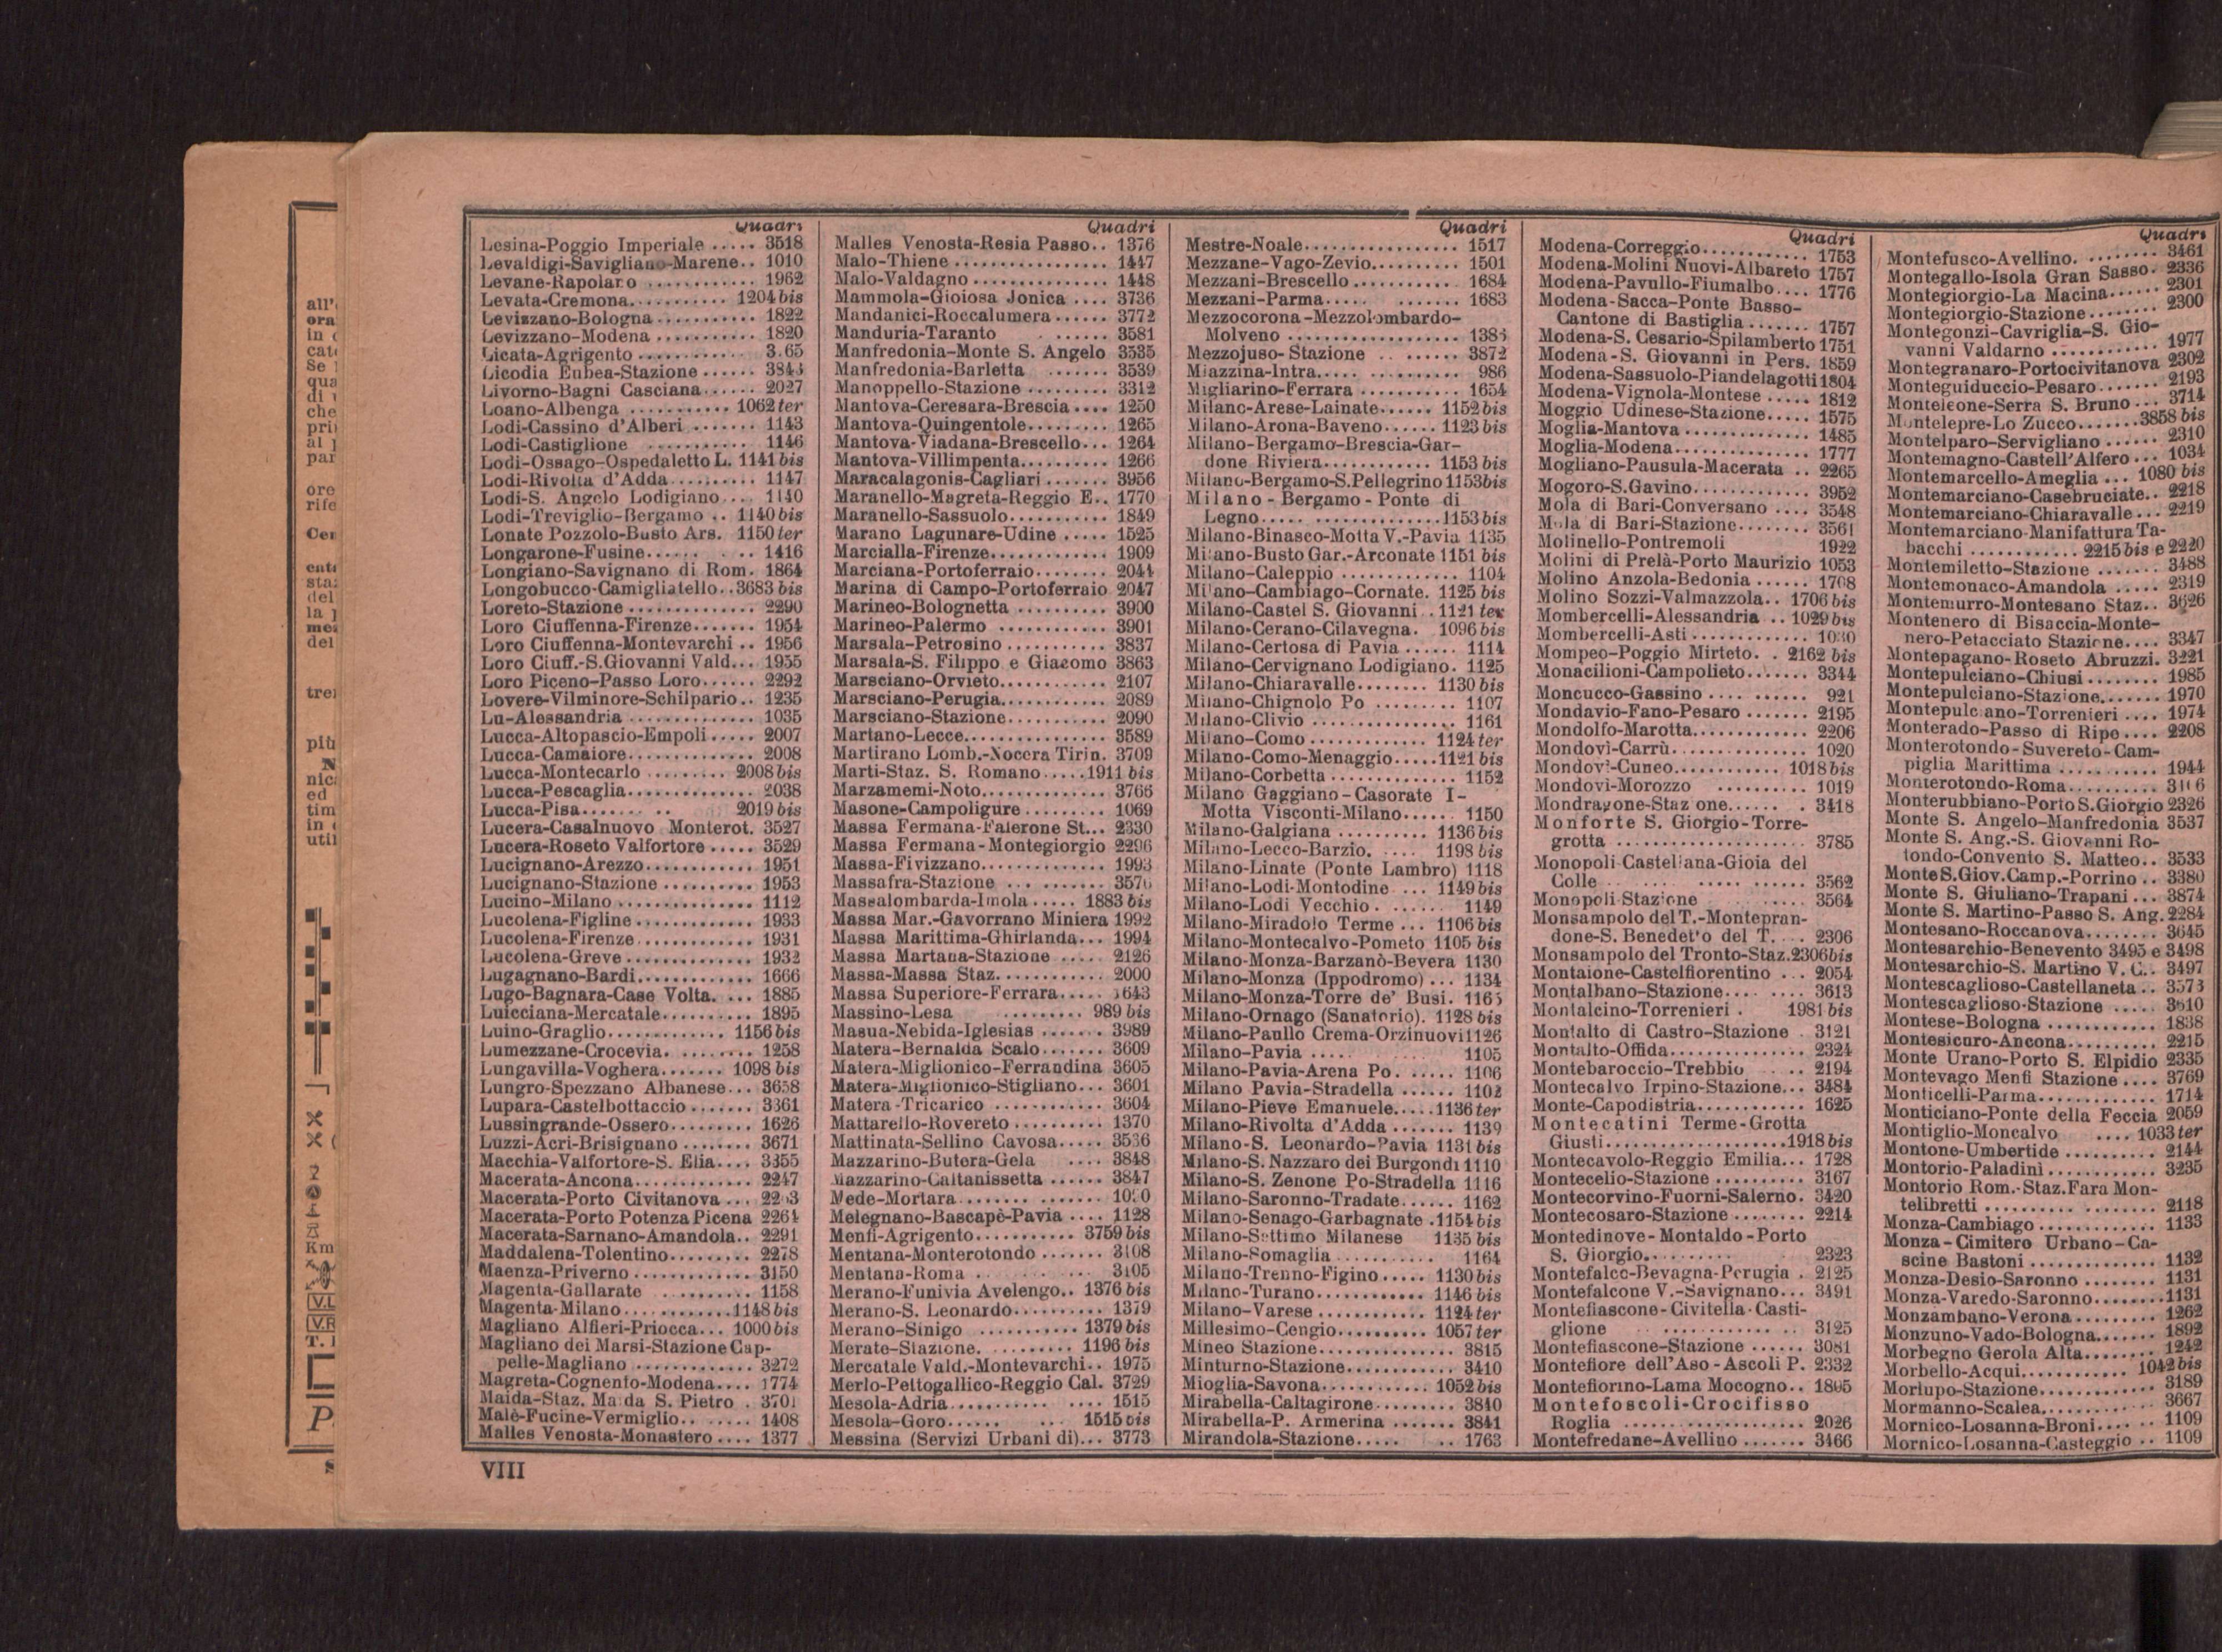 Quadri
Lesina-Poggio Imperiale ..... 3518
Levaldigi-Savigliano-Marene.. 1010
Levane-Rapolano ............ 1962
Levata-Cremona.......... 1204 bis
Levizzano-Bologna........... 1822
Levizzano-Modena ........... 1820
Licata-Agrigento ............
Licodia Eubea-Stazione ......
Livorno-Bagni Casciana...... 2027
Loano-Albenga ........... 1062 ter
Lodi-Cassino d'Alberi ....... 1143
Lodi-Castiglione .......... 1146
Lodi-Ossago-Ospedaletto L. 1141 bis
Lodi-Rivolta d'Adda.......... 1147
Lodi-S. Angelo Lodigiano.... 1140
Lodi-Treviglio-Bergamo .. 1140 bis
Lonate Pozzolo-Busto Ars. 1150 ter
Longarone-Fusine...... .. 1416
Longiano-Savignano di Rom. 1864
Longobucco-Camigliatello..3683 bis
Loreto-Stazione ............. 2290
Loro Ciuffenna-Firenze....... 1954
Loro Ciuffenna-Montevarchi .. 1956
Loro Ciuff.-S.Giovanni Vald... 1955
Loro Piceno-Passo Loro...... 2292
Lovere-Vilminore-Schilpario.. 1235
Lu-Alessandria .............. 1035
Lucca-Altopascio-Empoli..... 2007
Lucca-Camaiore.............. 2008
Lucca-Montecarlo ........ 2008 bis
Lucca-Pescaglia.............. 2038
Lucca-Pisa....... .. 2019 bis
Lucera-Casalnuovo Monterot. 3527
Lucera-Roseto Valfortore ..... 3529
Lucignano-Arezzo............ 1951
Lucignano-Stazione .......... 1953
Lucino-Milano ............... 1112
Lucolena-Figline............. 1933
Lucolena-Firenze............. 1931
Lucolena-Greve .............. 1932
Lugagnano-Bardi............. 1666
Lugo-Bagnara-Case Volta. ... 1885
Luicciana-Mercatale.......... 1895
Luino-Graglio............. 1156 bis
Lumezzane-Crocevia. ........ 1258
Lungavilla-Voghera....... 1098 bis
Lungro-Spezzano Albanese... 3658
Lupara-Castelbottaccio ....... 3361
Lussingrande-Ossero......... 1626
Luzzi-Acri-Brisignano ........ 3671
Macchia-Valfortore-S. Elia.... 3355
Macerata-Ancona............. 2247
Macerata-Porto Civitanova ...
Macerata-Porto Potenza Picena 2264
Macerata-Sarnano-Amandola.. 2291
Maddalena-Tolentino......... 2278
Maenza-Priverno ............. 3150
Magenta-Gallarate .......... 1158
Magenta-Milano............1148 bis
Magliano Alfieri-Priocca... 1000 bis
Magliano dei Marsi-Stazione Cap-
pelle-Magliano ............. 3272
Magreta-Cognento-Modena.... 1774
Maida-Staz. Maida S. Pietro . 3701
Malè-Fucine-Vermiglio.. ..... 1408
Malles Venosta-Monastero .... 1377
Quadri
Malles Venosta-Resia Passo.. 1376
Malo-Thiene ................. 1447
Malo-Valdagno ............... 1448
Mammola-Gioiosa Jonica .... 3736
Mandanici-Roccalumera ...... 3772
Manduria-Taranto ...... 3581
Manfredonia-Monte S. Angelo 3535
Manfredonia-Barletta ....... 3539
Manoppello-Stazione ......... 3312
Mantova-Ceresara-Brescia .... 1250
Mantova-Quingentole......... 1265
Mantova-Viadana-Brescello... 1264
Mantova-Villimpenta.......... 1266
Maracalagonis-Cagliari ....... 3956
Maranello-Magreta-Reggio E.. 1770
Maranello-Sassuolo........... 1849
Marano Lagunare-Udine ..... 1525
Marcialla-Firenze............. 1909
Marciana-Portoferraio........ 2044
Marina di Campo-Portoferraio 2047
Marineo-Bolognetta .......... 3900
Marineo-Palermo ............ 3901
Marsala-Petrosino ........... 3837
Marsala-S. Filippo e Giacomo 3863
Marsciano-Orvieto............ 2107
Marsciano-Perugia............ 2089
Marsciano-Stazione........... 2090
Martano-Lecce................ 3589
Martirano Lomb.-Nocera Tirin. 3709
Marti-Staz. S. Romano.....1911 bis
Marzamemi-Noto............. 3766
Masone-Campoligure ......... 1069
Massa Fermana-Falerone St... 2330
Massa Fermana-Montegiorgio 2296
Massa-Fivizzano.............. 1993
Massafra-Stazione ... ....... 3576
Massalombarda-Imola ..... 1883 bis
Massa Mar.-Gavorrano Miniera 1992
Massa Marittima-Ghirlanda... 1994
Massa Martana-Stazione ..... 2126
Massa-Massa Staz............ 2000
Massa Superiore-Ferrara..... 1643
Massino-Lesa ......... 989 bis
Masua-Nebida-Iglesias ....... 3989
Matera-Bernalda Scalo....... 3609
Matera-Miglionico-Ferrandina 3605
Matera-Miglionico-Stigliano... 3601
Matera-Tricarico ............ 3604
Mattarello-Rovereto .......... 1370
Mattinata-Sellino Cavosa..... 3536
Mazzarino-Butera-Gela .... 3848
Mazzarino-Caltanissetta ...... 3847
Mede-Mortara....... .......
Melegnano-Bascapè-Pavia .... 1128
Menfi-Agrigento........... 3759 bis
Mentana-Monterotondo ....... 3108
Mentana-Roma .. ... 3105
Merano-Funivia Avelengo.. 1376 bis
Merano-S. Leonardo.......... 1379
Merano-Sinigo ........... 1379 bis
Merate-Stazione. ......... 1196 bis
Mercatale Vald.-Montevarchi.. 1975
Merlo-Pettogallico-Reggio Cal. 3729
Mesola-Adria.......... .... 1515
Mesola-Goro...... ... 1515 bis
Messina (Servizi Urbani di)... 3773
Quadri
Mestre-Noale................ 1517
Mezzane-Vago-Zevio.......... 1501
Mezzani-Brescello ........... 1684
Mezzani-Parma..... ....... 1683
Mezzocorona-Mezzolombardo-
Molveno ..................
Mezzojuso-Stazione .. ...... 3872
Miazzina-Intra..... .......... 986
Migliarino-Ferrara ........... 1654
Milano-Arese-Lainate...... 1152 bis
Milano-Arona-Baveno...... 1123 bis
Milano-Bergamo-Brescia-Gar-
done Riviera............ 1153 bis
Milano-Bergamo-S.Pellegrino 1153bis
Milano - Bergamo - Ponte di
Legno..... ..............1153 bis
Milano-Binasco-Motta V.-Pavia 1135
Milano-Busto Gar.-Arconate 1151 bis
Milano-Caleppio ............. 1104
Milano-Cambiago-Cornate. 1125 bis
Milano-Castel S. Giovanni .. 1121 ter
Milano-Cerano-Cilavegna. 1096 bis
Milano-Certosa di Pavia ...... 1114
Milano-Cervignano Lodigiano. 1125
Milano-Chiaravalle........ 1130 bis
Milano-Chignolo Po ......... 1107
Milano-Clivio ................ 1161
Milano-Como ............. 1124 ter
Milano-Como-Menaggio.....1121 bis
Milano-Corbetta .............. 1152
Milano Gaggiano-Casorate I-
Motta Visconti-Milano...... 1150
Milano-Galgiana .......... 1136 bis
Milano-Lecco-Barzio. .... 1198 bis
Milano-Linate (Ponte Lambro) 1118
Milano-Lodi-Montodine ... 1149 bis
Milano-Lodi Vecchio . ...... 1149
Milano-Miradolo Terme ... 1106 bis
Milano-Montecalvo-Pometo 1105 bis
Milano-Monza-Barzanò-Bevera 1130
Milano-Monza (Ippodromo) ... 1134
Milano-Monza-Torre de' Busi.
Milano-Ornago (Sanatorio). 1128 bis
Milano-Paullo Crema-Orzinuovi1126
Milano-Pavia ..... 1105
Milano-Pavia-Arena Po. ..... 1106
Milano Pavia-Stradella ...... 1102
Milano-Pieve Emanuele.....1136 ter
Milano-Rivolta d'Adda ....... 1139
Milano-S. Leonardo-Pavia 1131 bis
Milano-S. Nazzaro dei Burgondi 1110
Milano-S. Zenone Po-Stradella 1116
Milano-Saronno-Tradate...... 1162
Milano-Senago-Garbagnate .1154 bis
Milano-Settimo Milanese 1135 bis
Milano-Somaglia ............ 1164
Milano-Trenno-Figino..... 1130 bis
Milano-Turano............ 1146 bis
Milano-Varese ............ 1124 ter
Millesimo-Cengio.......... 1057 ter
Mineo Stazione.............. 3815
Minturno-Stazione............ 3410
Mioglia-Savona............ 1052 bis
Mirabella-Caltagirone......... 3840
Mirabella-P. Armerina ....... 3841
Mirandola-Stazione..... .. 1763
Quadri
Modena-Correggio............ 1753
Modena-Molini Nuovi-Albareto 1757
Modena-Pavullo-Fiumalbo.... 1776
Modena-Sacca-Ponte Basso-
Cantone di Bastiglia ....... 1757
Modena-S. Cesario-Spilamberto 1751
Modena-S. Giovanni in Pers. 1859
Modena-Sassuolo-Piandelagotti 1804
Modena-Vignola-Montese ..... 1812
Moggio Udinese-Stazione..... 1575
Moglia-Mantova .............. 1485
Moglia-Modena............... 1777
Mogliano-Pausula-Macerata .. 2265
Mogoro-S.Gavino............. 3952
Mola di Bari-Conversano .... 3548
Mola di Bari-Stazione........ 3561
Molinello-Pontremoli 1922
Molini di Prelà-Porto Maurizio 1053
Molino Anzola-Bedonia ...... 1708
Molino Sozzi-Valmazzola.. 1706 bis
Mombercelli-Alessandria .. 1029 bis
Mombercelli-Asti ............ 1030
Mompeo-Poggio Mirteto. . 2162 bis
Monacilioni-Campolieto....... 3344
Moncucco-Gassino .... ...... 921
Mondavio-Fano-Pesaro ....... 2195
Mondolfo-Marotta............ 2206
Mondovì-Carrù............... 1020
Mondovì-Cuneo........... 1018 bis
Mondovì-Morozzo ......... 1019
Mondragone-Stazione...... . 3418
Monforte S. Giorgio-Torre-
grotta .................... 3785
Monopoli-Castellana-Gioia del
Colle .. ..... ...... 3562
Monopoli-Stazione ..... 3564
Monsampolo del T.-Montepran-
done-S. Benedetto del T. ... 2306
Monsampolo del Tronto-Staz.2306bis
Montaione-Castelfiorentino ... 2054
Montalbano-Stazione.... .... 3613
Montalcino-Torrenieri . 1981 bis
Montalto di Castro-Stazione . 3121
Montalto-Offida............... 2324
Montebaroccio-Trebbio ..... 2194
Montecalvo Irpino-Stazione... 3484
Monte-Capodistria............ 1625
Montecatini Terme-Grotta
Giusti....................1918 bis
Montecavolo-Reggio Emilia... 1728
Montecelio-Stazione .......... 3167
Montecorvino-Fuorni-Salerno. 3420
Montecosaro-Stazione ........ 2214
Montedinove-Montaldo-Porto
S. Giorgio......... 2323
Montefalco-Bevagna-Perugia . 2125
Montefalcone V.-Savignano... 3491
Montefiascone-Civitella-Casti-
glione ............ .. 3125
Montefiascone-Stazione ...... 3081
Montefiore dell'Aso-Ascoli P. 2332
Montefiorino-Lama Mocogno.. 1805
Montefoscoli-Crocifisso
Roglia ................... 2026
Montefredane-Avellino ....... 3466
Quadri
Montefusco-Avellino. ........ 3461
Montegallo-Isola Gran Sasso. 2336
Montegiorgio-La Macina...... 2301
Montegiorgio-Stazione........ 2300
Montegonzi-Cavriglia-S. Gio-
vanni Valdarno ............ 1977
Montegranaro-Portocivitanova 2302
Monteguiduccio-Pesaro ....... 2193
Monteleone-Serra S. Bruno ... 3714
Montelepre-Lo Zucco.......3858 bis
Montelparo-Servigliano ...... 2310
Montemagno-Castell'Alfero ... 1034
Montemarcello-Ameglia ... 1080 bis
Montemarciano-Casebruciate.. 2218
Montemarciano-Chiaravalle... 2219
Montemarciano-Manifattura Ta-
bacchi ............ 2215 bis e 2220
Montemiletto-Stazione ....... 3488
Montemonaco-Amandola ..... 2319
Montemurro-Montesano Staz.. 3626
Montenero di Bisaccia-Monte-
nero-Petacciato Stazione.... 3347
Montepagano-Roseto Abruzzi. 3221
Montepulciano-Chiusi ........ 1985
Montepulciano-Stazione....... 1970
Montepulciano-Torrenieri .... 1974
Monterado-Passo di Ripe .... 2208
Monterotondo-Suvereto-Cam-
piglia Marittima ........... 1944
Monterotondo-Roma.......... 3106
Monterubbiano-Porto S.Giorgio 2326
Monte S. Angelo-Manfredonia 3537
Monte S. Ang.-S. Giovanni Ro-
tondo-Convento S. Matteo.. 3533
Monte S.Giov.Camp.-Porrino .. 3380
Monte S. Giuliano-Trapani ... 3874
Monte S. Martino-Passo S. Ang. 2284
Montesano-Roccanova........ 3645
Montesarchio-Benevento 3495 e 3498
Montesarchio-S. Martino V. C.. 3497
Montescaglioso-Castellaneta .. 3573
Montescaglioso-Stazione ..... 3610
Montese-Bologna ............ 1838
Montesicuro-Ancona.......... 2215
Monte Urano-Porto S. Elpidio 2335
Montevago Menfi Stazione .... 3769
Monticelli-Parma............. 1714
Monticiano-Ponte della Feccia 2059
Montiglio-Moncalvo .... 1033 ter
Montone-Umbertide .......... 2144
Montorio-Paladini ............ 3235
Montorio Rom.-Staz.Fara Mon-
telibretti .......... ........ 2118
Monza-Cambiago ............ 1133
Monza-Cimitero Urbano-Ca-
scine Bastoni .............. 1132
Monza-Desio-Saronno ........ 1131
Monza-Varedo-Saronno........1131
Monzambano-Verona......... 1262
Monzuno-Vado-Bologna....... 1892
Morbegno Gerola Alta........ 1242
Morbello-Acqui............ 1042 bis
Morlupo-Stazione............ 3189
Mormanno-Scalea............ 3667
Mornico-Losanna-Broni.... .. 1109
Mornico-Losanna-Casteggio .. 1109
VIII